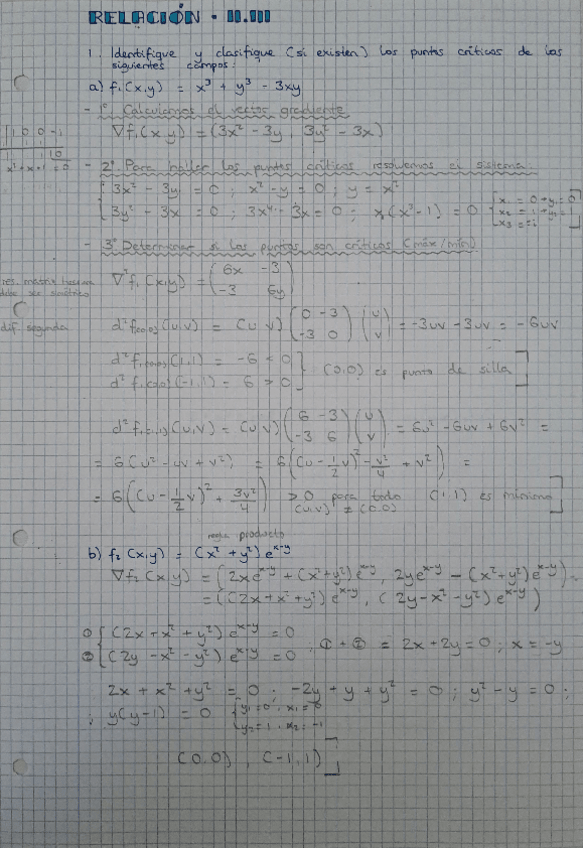 RELACIÓN · II.III
1. Identifique y clasifique (si existen) los puntos críticos de los
siguientes campos:
a) f₁(x,y) = x³ + y³ - 3xy
- 1º Calculamos el vector gradiente
∇f₁(x,y) = (3x² - 3y, 3y² - 3x)
1 0 0 -1
1 1 1
1 1 1 0
x² + x + 1 = 0
- 2º Para hallar los puntos críticos resolvemos el sistema.
3x² - 3y = 0 ; x² - y = 0 ; y = x²
3y² - 3x = 0 ; 3x⁴ - 3x = 0 ; x(x³ - 1) = 0
x₁ = 0 → y₁ = 0
x₂ = 1 → y₂ = 1
- 3º Determinar si los puntos son críticos (máx/mín).
∇²f₁(x,y) = (6x -3
-3 6y)
res. matriz hessiana
debe ser simétrica
dif. segunda
d²f₁(0,0)(u,v) = (u v) (0 -3
-3 0) (u
v) = -3uv - 3uv = -6uv
d²f₁(0,0)(1,1) = -6 < 0
d²f₁(0,0)(-1,1) = 6 > 0
(0,0) es punto de silla
d²f₁(1,1)(u,v) = (u v) (6 -3
-3 6) (u
v) = 6u² - 6uv + 6v² =
= 6(u² - uv + v²) = 6((u - 1/2 v)² - v²/4 + v²) =
= 6((u - 1/2 v)² + 3v²/4) > 0 para todo (u,v) ≠ (0,0) (1,1) es mínimo
regla producto
b) f₂(x,y) = (x² + y²) e^(x-y)
∇f₂(x,y) = (2xe^(x-y) + (x²+y²)e^(x-y), 2ye^(x-y) - (x²+y²)e^(x-y)) =
= ((2x + x² + y²) e^(x-y), (2y - x² - y²) e^(x-y))
① (2x + x² + y²) e^(x-y) = 0
② (2y - x² - y²) e^(x-y) = 0 ; ① + ② = 2x + 2y = 0 ; x = -y
2x + x² + y² = 0 ; -2y + y + y² = 0 ; y² - y = 0 ;
; y(y-1) = 0 y₁ = 0, x₁ = 0
y₂ = 1, x₂ = -1
(0,0), (-1,1)